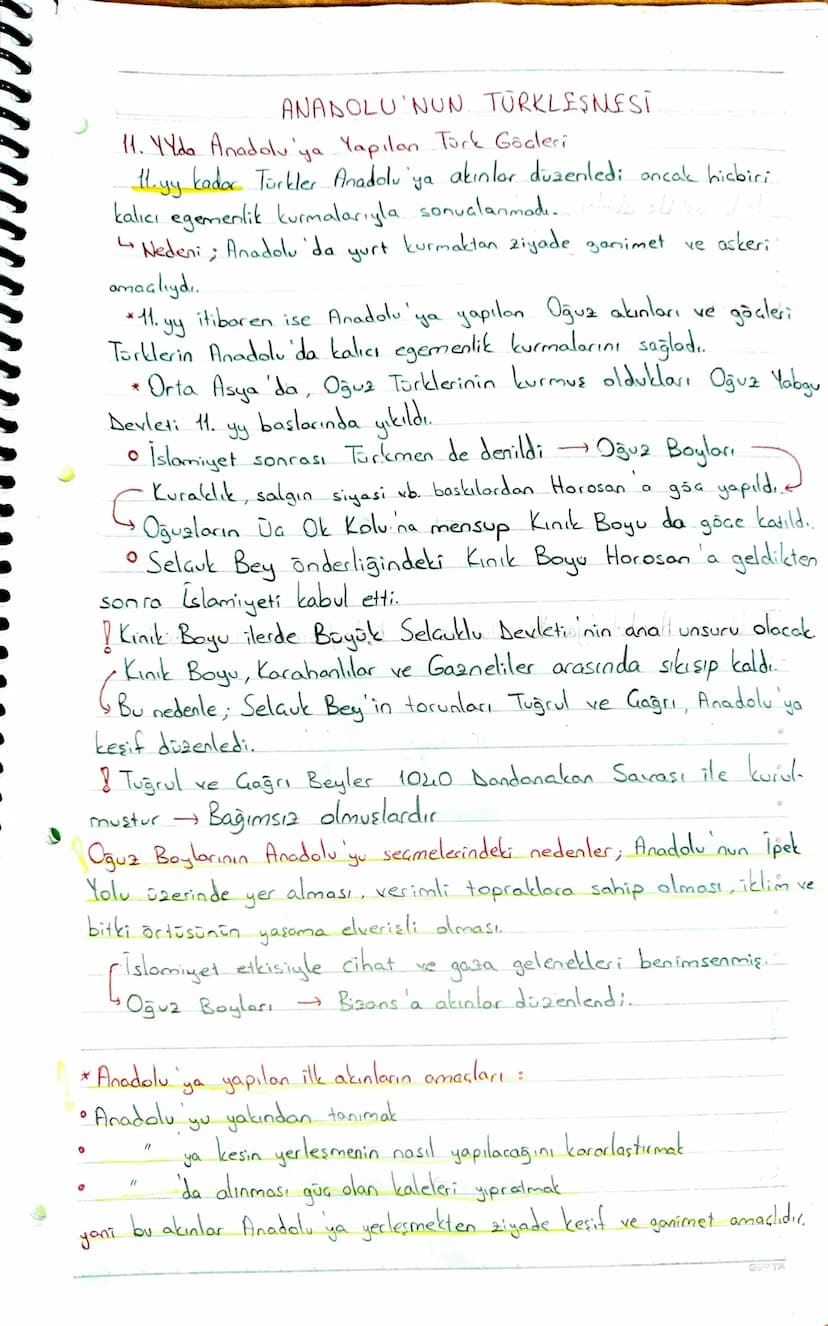 ANADOLU'NUN TÜRKLEŞMESİ
11. YYda Anadolu'ya Yapılan Türk Göçleri
11.yy kadar Türkler Anadolu'ya akınlar düzenledi ancak hiçbiri
kalıcı egemenlik kurmalarıyla sonuçlanmadı.
↳ Nedeni ; Anadolu'da yurt kurmaktan ziyade ganimet ve askeri
amaçlıydı.
*11. yy itibaren ise Anadolu'ya yapılan Oğuz akınları ve göçleri
Türklerin Anadolu'da kalıcı egemenlik kurmalarını sağladı.
* Orta Asya'da, Oğuz Türklerinin kurmuş oldukları Oğuz Yabgu
Devleti 11. yy başlarında yıkıldı.
o İslamiyet sonrası Türkmen de denildi → Oğuz Boyları
Kuraklık, salgın siyasi vb. baskılardan Horosan'a göç yapıldı.
↳ Oğuzların Üç Ok Kolu'na mensup Kınık Boyu da göçe katıldı.
o Selçuk Bey önderliğindeki Kınık Boyu Horosan'a geldikten
sonra İslamiyeti kabul etti.
! Kınık Boyu ilerde Büyük Selçuklu Devleti'nin ana unsuru olacak
Kınık Boyu, Karahanlılar ve Gazneliler arasında sıkışıp kaldı.
↳ Bu nedenle; Selçuk Bey'in torunları Tuğrul ve Çağrı, Anadolu'ya
keşif düzenledi.
! Tuğrul ve Çağrı Beyler 1040 Dandanakan Savaşı ile kurul-
muştur → Bağımsız olmuşlardır
Oğuz Boylarının Anadolu'yu seçmelerindeki nedenler; Anadolu'nun İpek
Yolu üzerinde yer alması, verimli topraklara sahip olması, iklim ve
bitki örtüsünün yaşama elverişli olması.
İslamiyet etkisiyle cihat ve gaza gelenekleri benimsenmiş.
↳ Oğuz Boyları → Bizans'a akınlar düzenlendi.
* Anadolu'ya yapılan ilk akınların amaçları :
• Anadolu'yu yakından tanımak
• " ya kesin yerleşmenin nasıl yapılacağını kararlaştırmak
• " 'da alınması güç olan kaleleri yıpratmak
yani bu akınlar Anadolu'ya yerleşmekten ziyade keşif ve ganimet amaçlıdır.
GIPTA